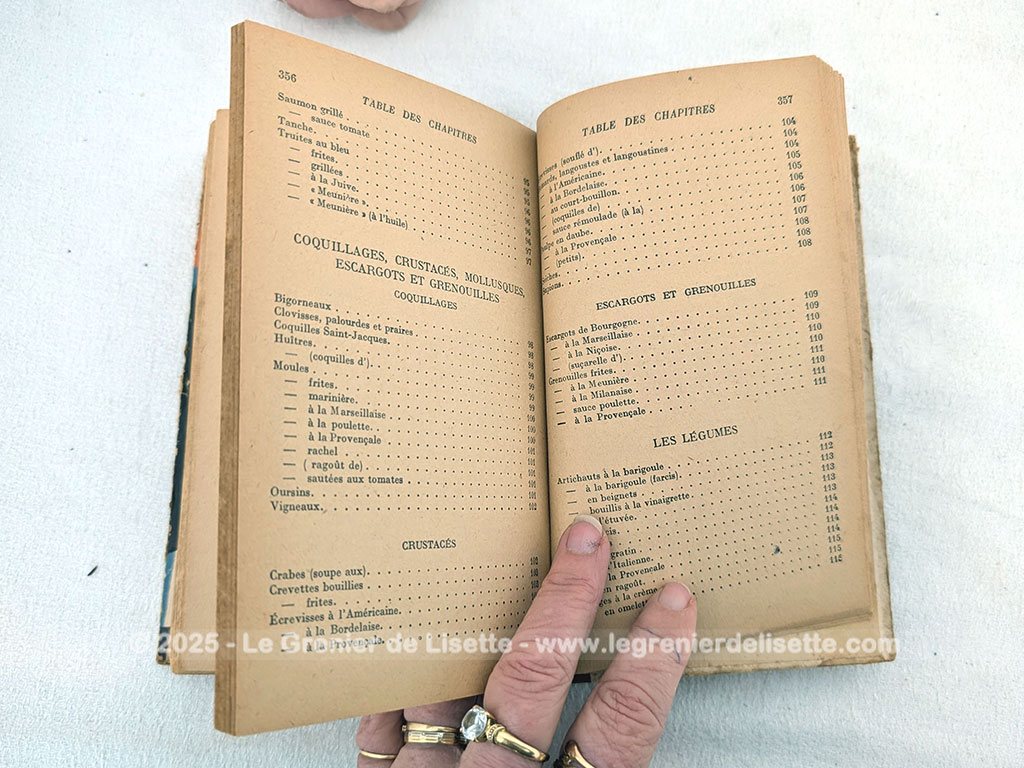 356
TABLE DES CHAPITRES
Saumon grillé
— sauce tomate
Tanche.
Truites au bleu 95
— frites. 95
— grillées 95
— à la Juive. 96
— « Meunière ». 96
— « Meunière » (à l'huile) 97
COQUILLAGES, CRUSTACÉS, MOLLUSQUES,
ESCARGOTS ET GRENOUILLES
COQUILLAGES
Bigorneaux
Clovisses, palourdes et praires 98
Coquilles Saint-Jacques. 98
Huîtres. 98
— (coquilles d'). 99
Moules 99
— frites. 99
— marinière. 99
— à la Marseillaise 100
— à la poulette. 100
— à la Provençale 101
— rachel 101
— ( ragoût de) 101
— sautées aux tomates 101
Oursins. 101
Vigneaux. 102
CRUSTACÉS
Crabes (soupe aux). 102
Crevettes bouillies 103
— frites. 103
Écrevisses à l'Américaine.
— à la Bordelaise.
— à la Provençale.
357
TABLE DES CHAPITRES
(souflé d'). 104
langoustes et langoustines 104
à l'Américaine. 104
— à la Bordelaise. 105
— au court-bouillon. 105
— (coquiles de) 106
— sauce rémoulade (à la) 106
en daube. 107
— à la Provençale 107
— (petits). 108
108
108
ESCARGOTS ET GRENOUILLES
Escargots de Bourgogne. 109
— à la Marseillaise 109
— à la Niçoise. 110
— (suçarelle d'). 110
Grenouilles frites. 111
— à la Meunière 110
— à la Milanaise 111
— sauce poulette. 111
— à la Provençale
LES LÉGUMES
Artichauts à la barigoule 112
— à la barigoule (farcis). 112
— en beignets 113
— bouillis à la vinaigrette. 113
l'étuvée. 113
114
114
gratin 114
l'Italienne. 115
la Provencale 115
en ragoût. 115
à la crème
en omelette
© 2025 - Le Grenier de Lisette - www.legrenierdelisette.com